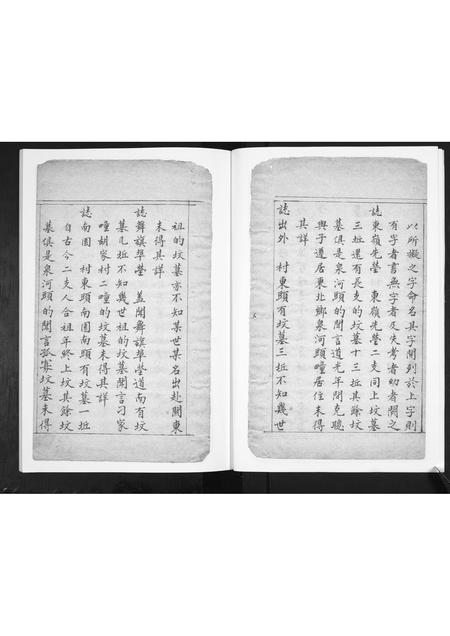 以所擬之字命名其字開列於上字則
有字者書無字者及失考者幼者闕之
誌東嶺先塋 東嶺先塋二支同上坟墓
三坵還有長支的坟墓十三坵其餘坟
墓俱是泉河頭的聞言道光年間克聰
與子遷居東北鄉泉河頭疃居住未得
其詳
誌出外 村東頭有坟墓三坵不知幾世
祖的坟墓亦不知某世某名出赴關東
未得其詳
誌舞旗華塋 蓋聞舞旗華塋道南有坟
墓几坵不知幾世祖的坟墓聞言刁家
疃胡家村二疃的坟墓未得其詳
誌南園 村東頭南園南頭有坟墓一坵
自古今二支人合祖年終上坟其餘坟
墓俱是泉河頭的聞言孤寡坟墓未得